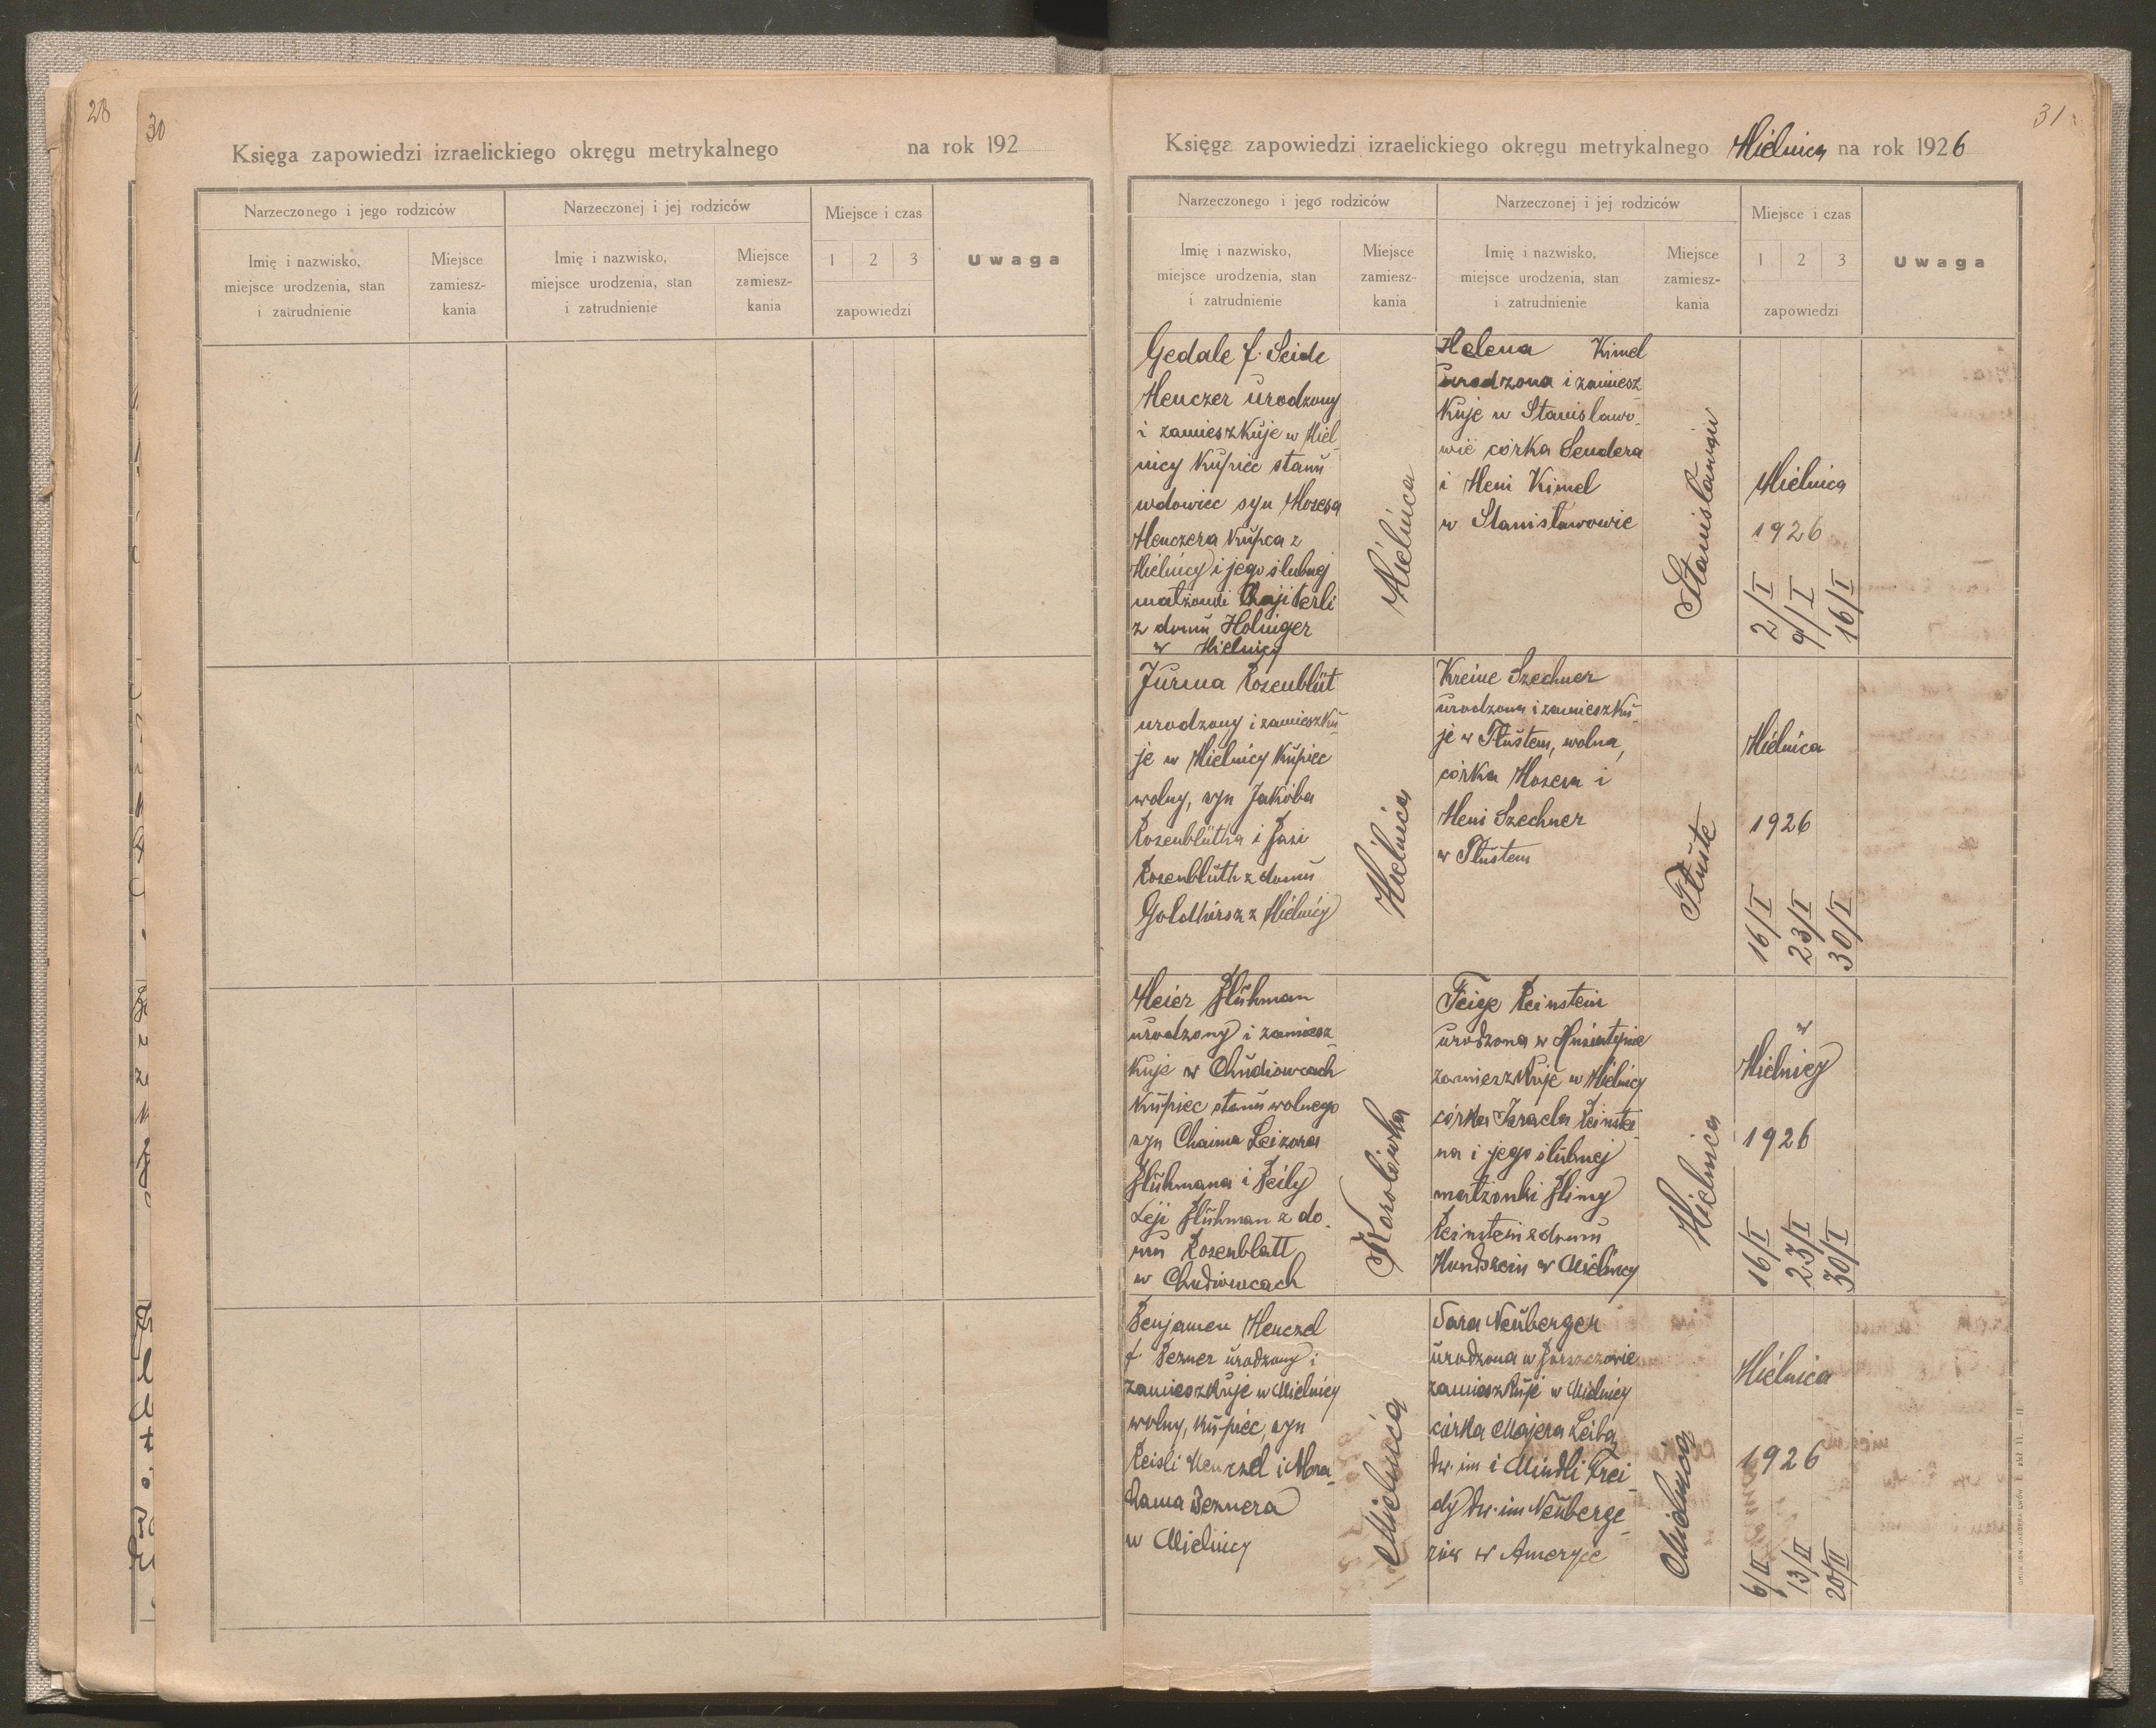 28
30
Księga zapowiedzi izraelickiego okręgu metrykalnego na rok 192
Narzeczonego i jego rodziców
Narzeczonej i jej rodziców
Miejsce i czas
Uwaga
Imię i nazwisko,
miejsce urodzenia, stan
i zatrudnienie
Miejsce
zamiesz-
kania
Imię i nazwisko,
miejsce urodzenia, stan
i zatrudnienie
Miejsce
zamiesz-
kania
1 2 3
zapowiedzi
31
Księga zapowiedzi izraelickiego okręgu metrykalnego Mielnica na rok 1926
Narzeczonego i jego rodziców
Narzeczonej i jej rodziców
Miejsce i czas
Uwaga
Imię i nazwisko,
miejsce urodzenia, stan
i zatrudnienie
Miejsce
zamiesz-
kania
Imię i nazwisko,
miejsce urodzenia, stan
i zatrudnienie
Miejsce
zamiesz-
kania
1 2 3
zapowiedzi
Gedale f. Seide
Henczer urodzony
i zamieszkuje w Miel-
nicy Kupiec stanu
wdowiec syn Mozesa
Henczera Kupca z
Mielnicy i jego ślubnej
małżonki
z domu Holinger
w Mielnicy
Mielnica
Helena Kimel
urodzona i zamiesz
kuje w Stanislawo-
wie córka Sendera
i Heni Kimel
w Stanisławowie
Stanisławów
Mielnica
1926
2/I
9/I
16/I
Jurma Rosenblüt
urodzony i zamieszku-
je w Mielnicy Kupiec
wolny, syn Jakóba
Rosenblütha i Basi
Rosenblüth z domu
Goldhirsz z Mielnicy
Mielnica
Kreine Szechner
urodzona i zamieszku-
je w Tłustem, wolna,
córka Mosesa i
Heni Szechner
w Tłustem
Tłuste
Mielnica
1926
16/I
23/I
30/I
Meier Bluhman
urodzony i zamiesz
kuje w Chudiowcach
Kupiec stanu wolnego
syn Chaima Leizora
Bluhmana i Beily
Leji Bluhman z do-
mu Rosenblatt
w Chudiowcach
Korolówka
Feige Reinstein
urodzona w Husiatynie
zamieszkuje w Mielnicy
córka Israela Reinste-
na i jego ślubnej
małżonki Blimy
Reinstein z domu
w Mielnicy
Mielnica
w
Mielnicy
1926
16/I
23/I
30/I
Benjamen Henczel
f. Bezner urodzony i
zamieszkuje w Mielnicy
wolny, kupiec, syn
Reisli Henczel i Abra-
hama Beznera
w Mielnicy
Mielnica
Sara Neuberger
urodzona w Borszczowie
zamieszkuje w Mielnicy
córka Majera Leiba
dw. im i Mindli Frei-
dy dw. im Neuberge-
rów w Ameryce
Mielnica
Mielnica
1926
6/II
13/II
20/II